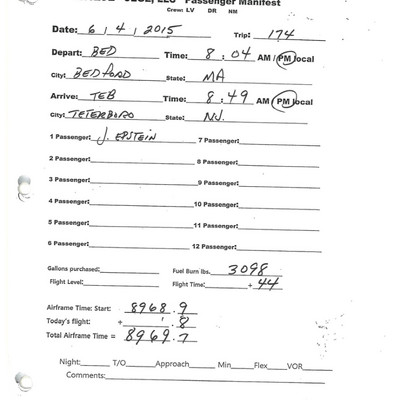 LLC Passenger Manifest
Crew: LV DR NM
Date: 6 / 4 / 2015 Trip: 174
Depart: BED Time: 8 : 04 AM / PM local
City: BEDFORD State: MA
Arrive: TEB Time: 8 : 49 AM / PM local
City: TETERBORO State: NJ
1 Passenger: J. EPSTEIN 7 Passenger:
2 Passenger: 8 Passenger:
3 Passenger: 9 Passenger:
4 Passenger: 10 Passenger:
5 Passenger: 11 Passenger:
6 Passenger: 12 Passenger:
Gallons purchased: Fuel Burn lbs. 3098
Flight Level: Flight Time: + 44
Airframe Time: Start: 8968.9
Today's flight: + .8
Total Airframe Time = 8969.7
Night: T/O Approach Min Flex VOR
Comments: